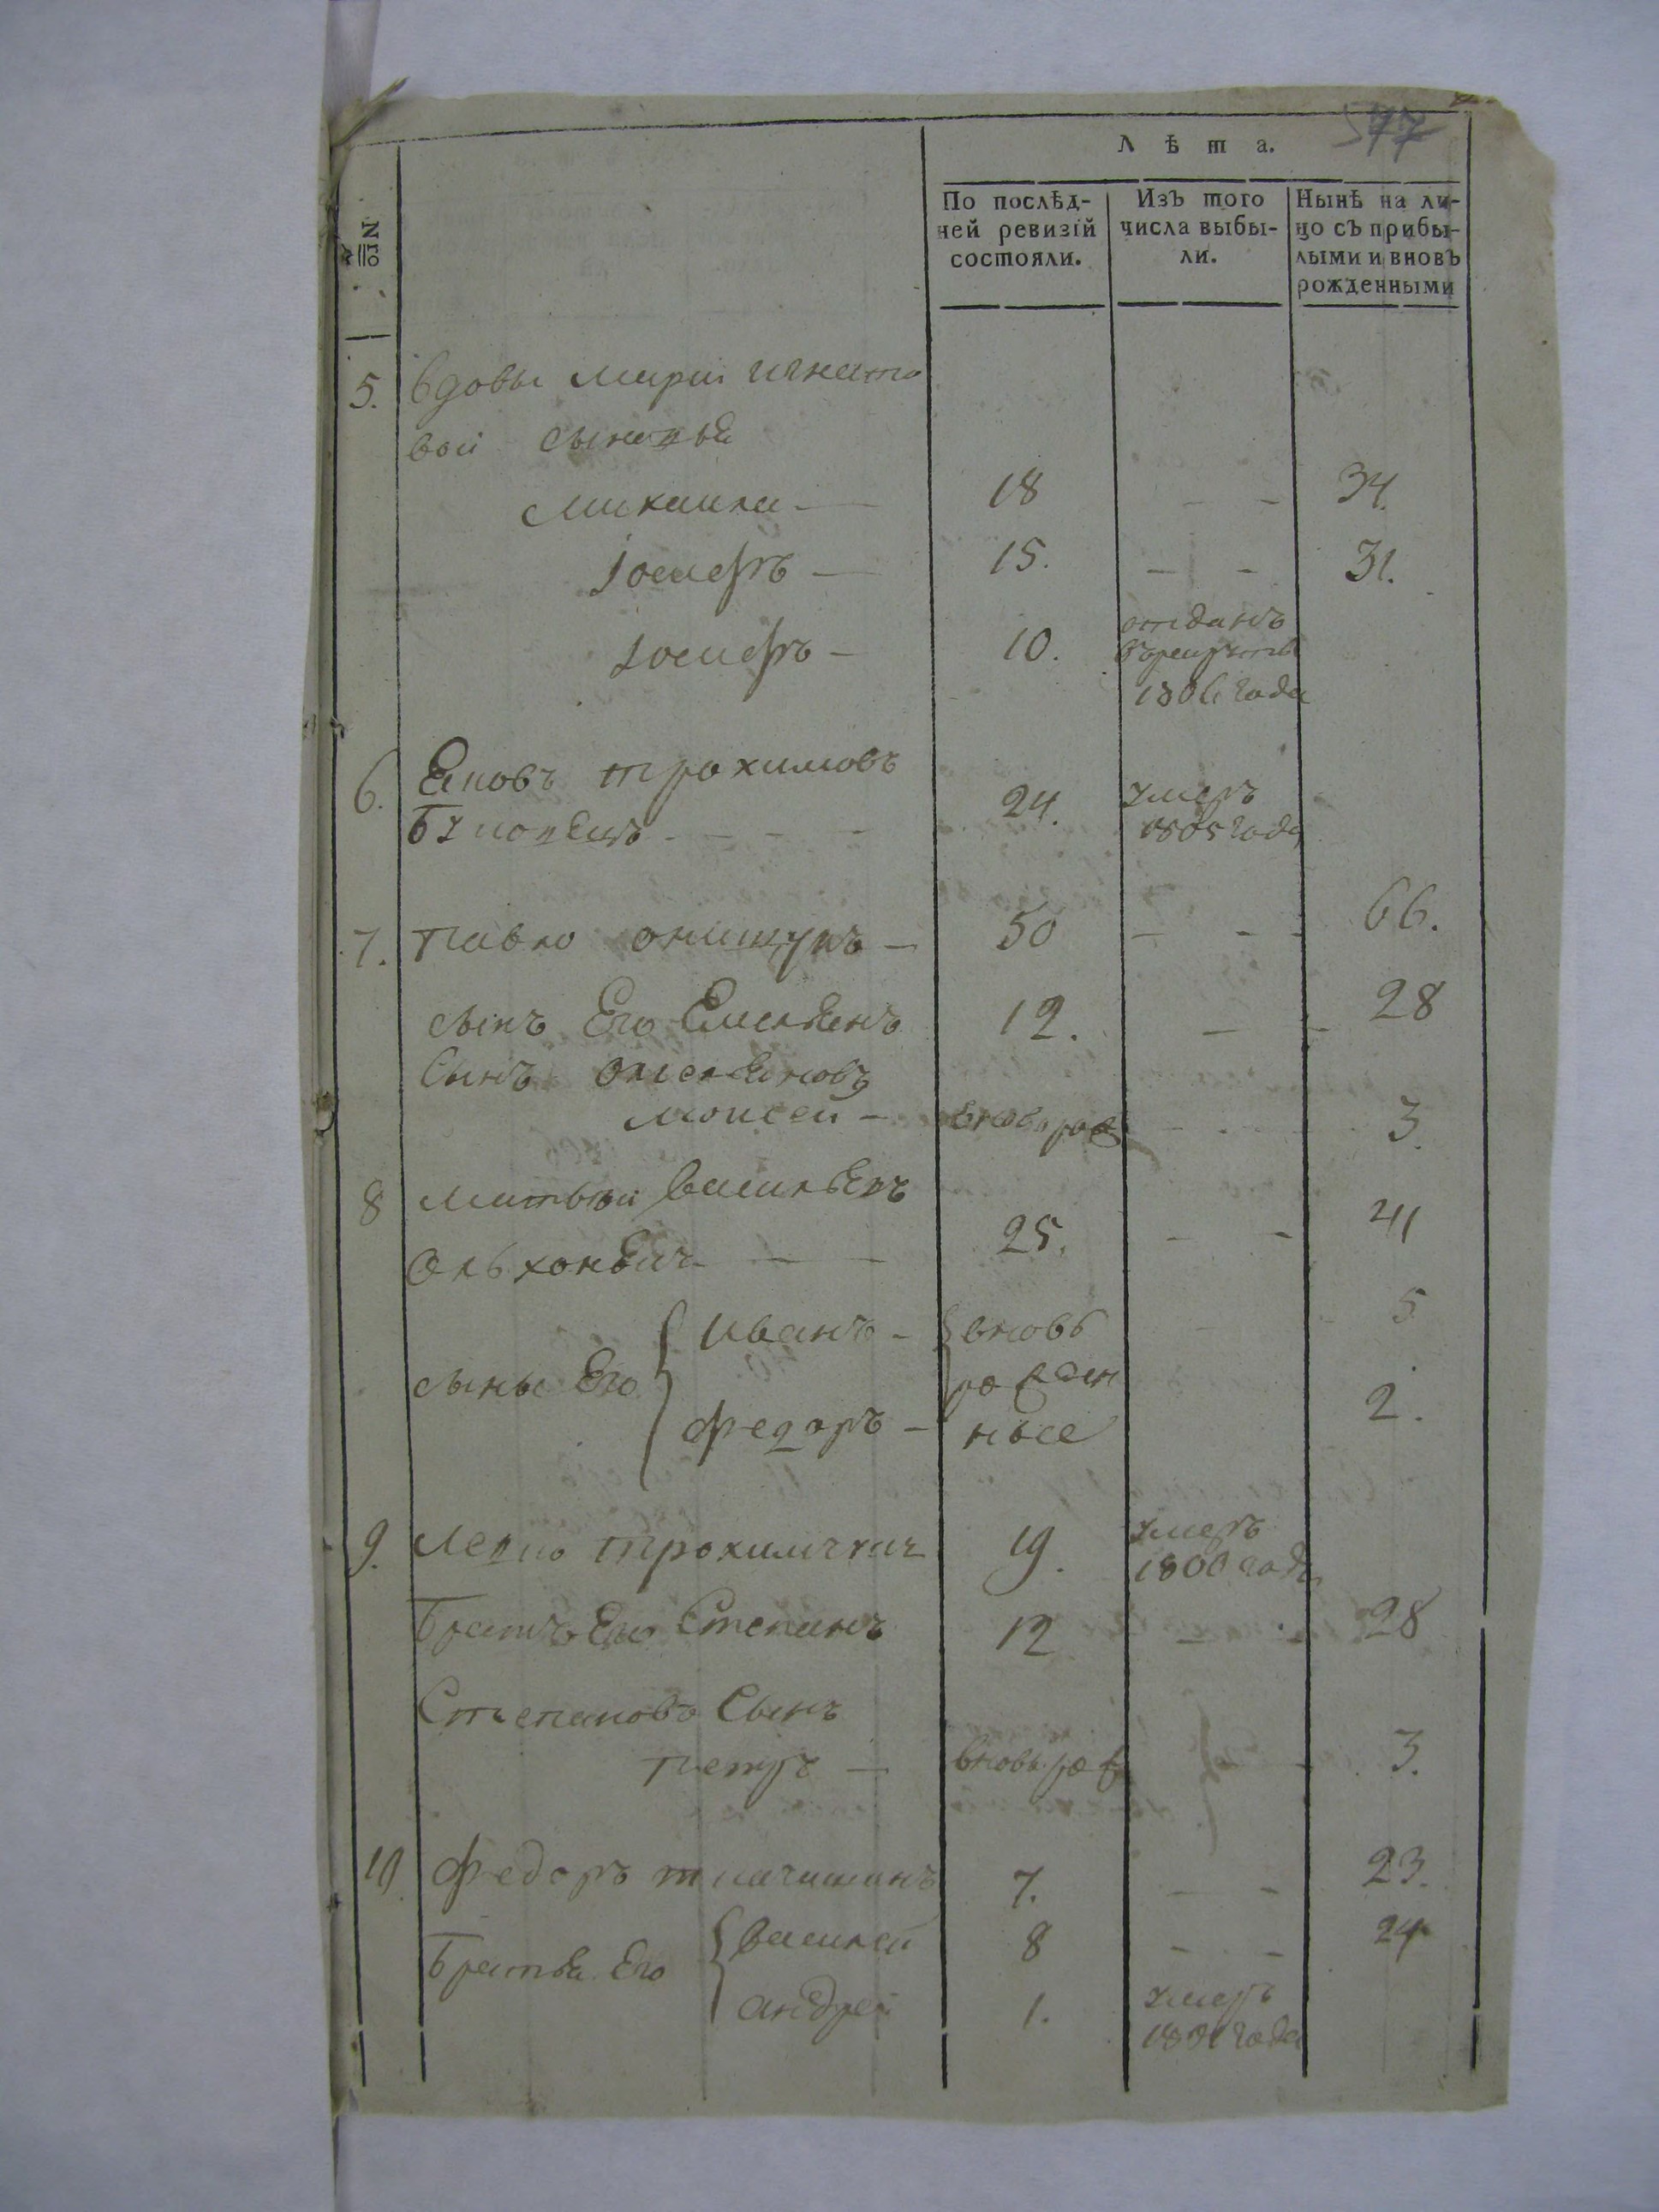 577
Лѣта.
№
По послѣд-
ней ревизій
состояли.
Изъ того
числа выбы-
ли.
Нынѣ на ли-
цо съ прибы-
лыми и вновь
рожденными
5. вдовы марии игнато
вой сыновья
михаила — 18 - - 34.
Iосифъ — 15. - - 31.
Iосифъ — 10. отданъ
въ рекруты
1806 года
6. Яковъ трохимовъ
24. умеръ
1805 года
7. Павло онищукъ — 50 - - - 66.
сынъ Его Емельянъ 12. - - 28
Сынъ омельяновъ
моисеи — вновь рож - - 3.
8 матвеи васильевъ
25. - - 41
сыны Его { иванъ — { вновь - 5
рожден
федоръ — ные 2.
9. трохимчукъ 19. умеръ
1800 года
братъ Его Степанъ 12 - - 28
Степановъ Сынъ
петръ — вновь рож - 3.
10. Федоръ 7. - - 23.
братья Его { василей 8 - - 24
андрей 1. умеръ
года